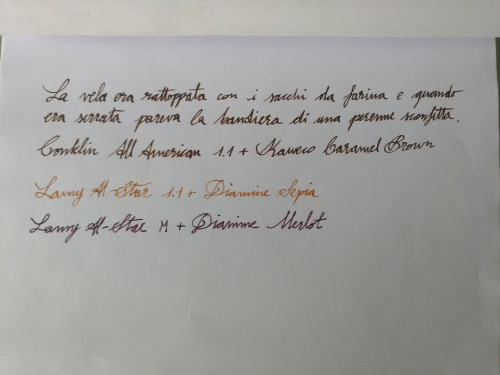 La vela era rattoppata con i sacchi da farina e quando
era serrata pareva la bandiera di una perenne sconfitta.
Conklin All American 1.1 + Kaweco Caramel Brown
Lamy Al-Star 1.1 + Diamine Sepia
Lamy Al-Star M + Diamine Merlot